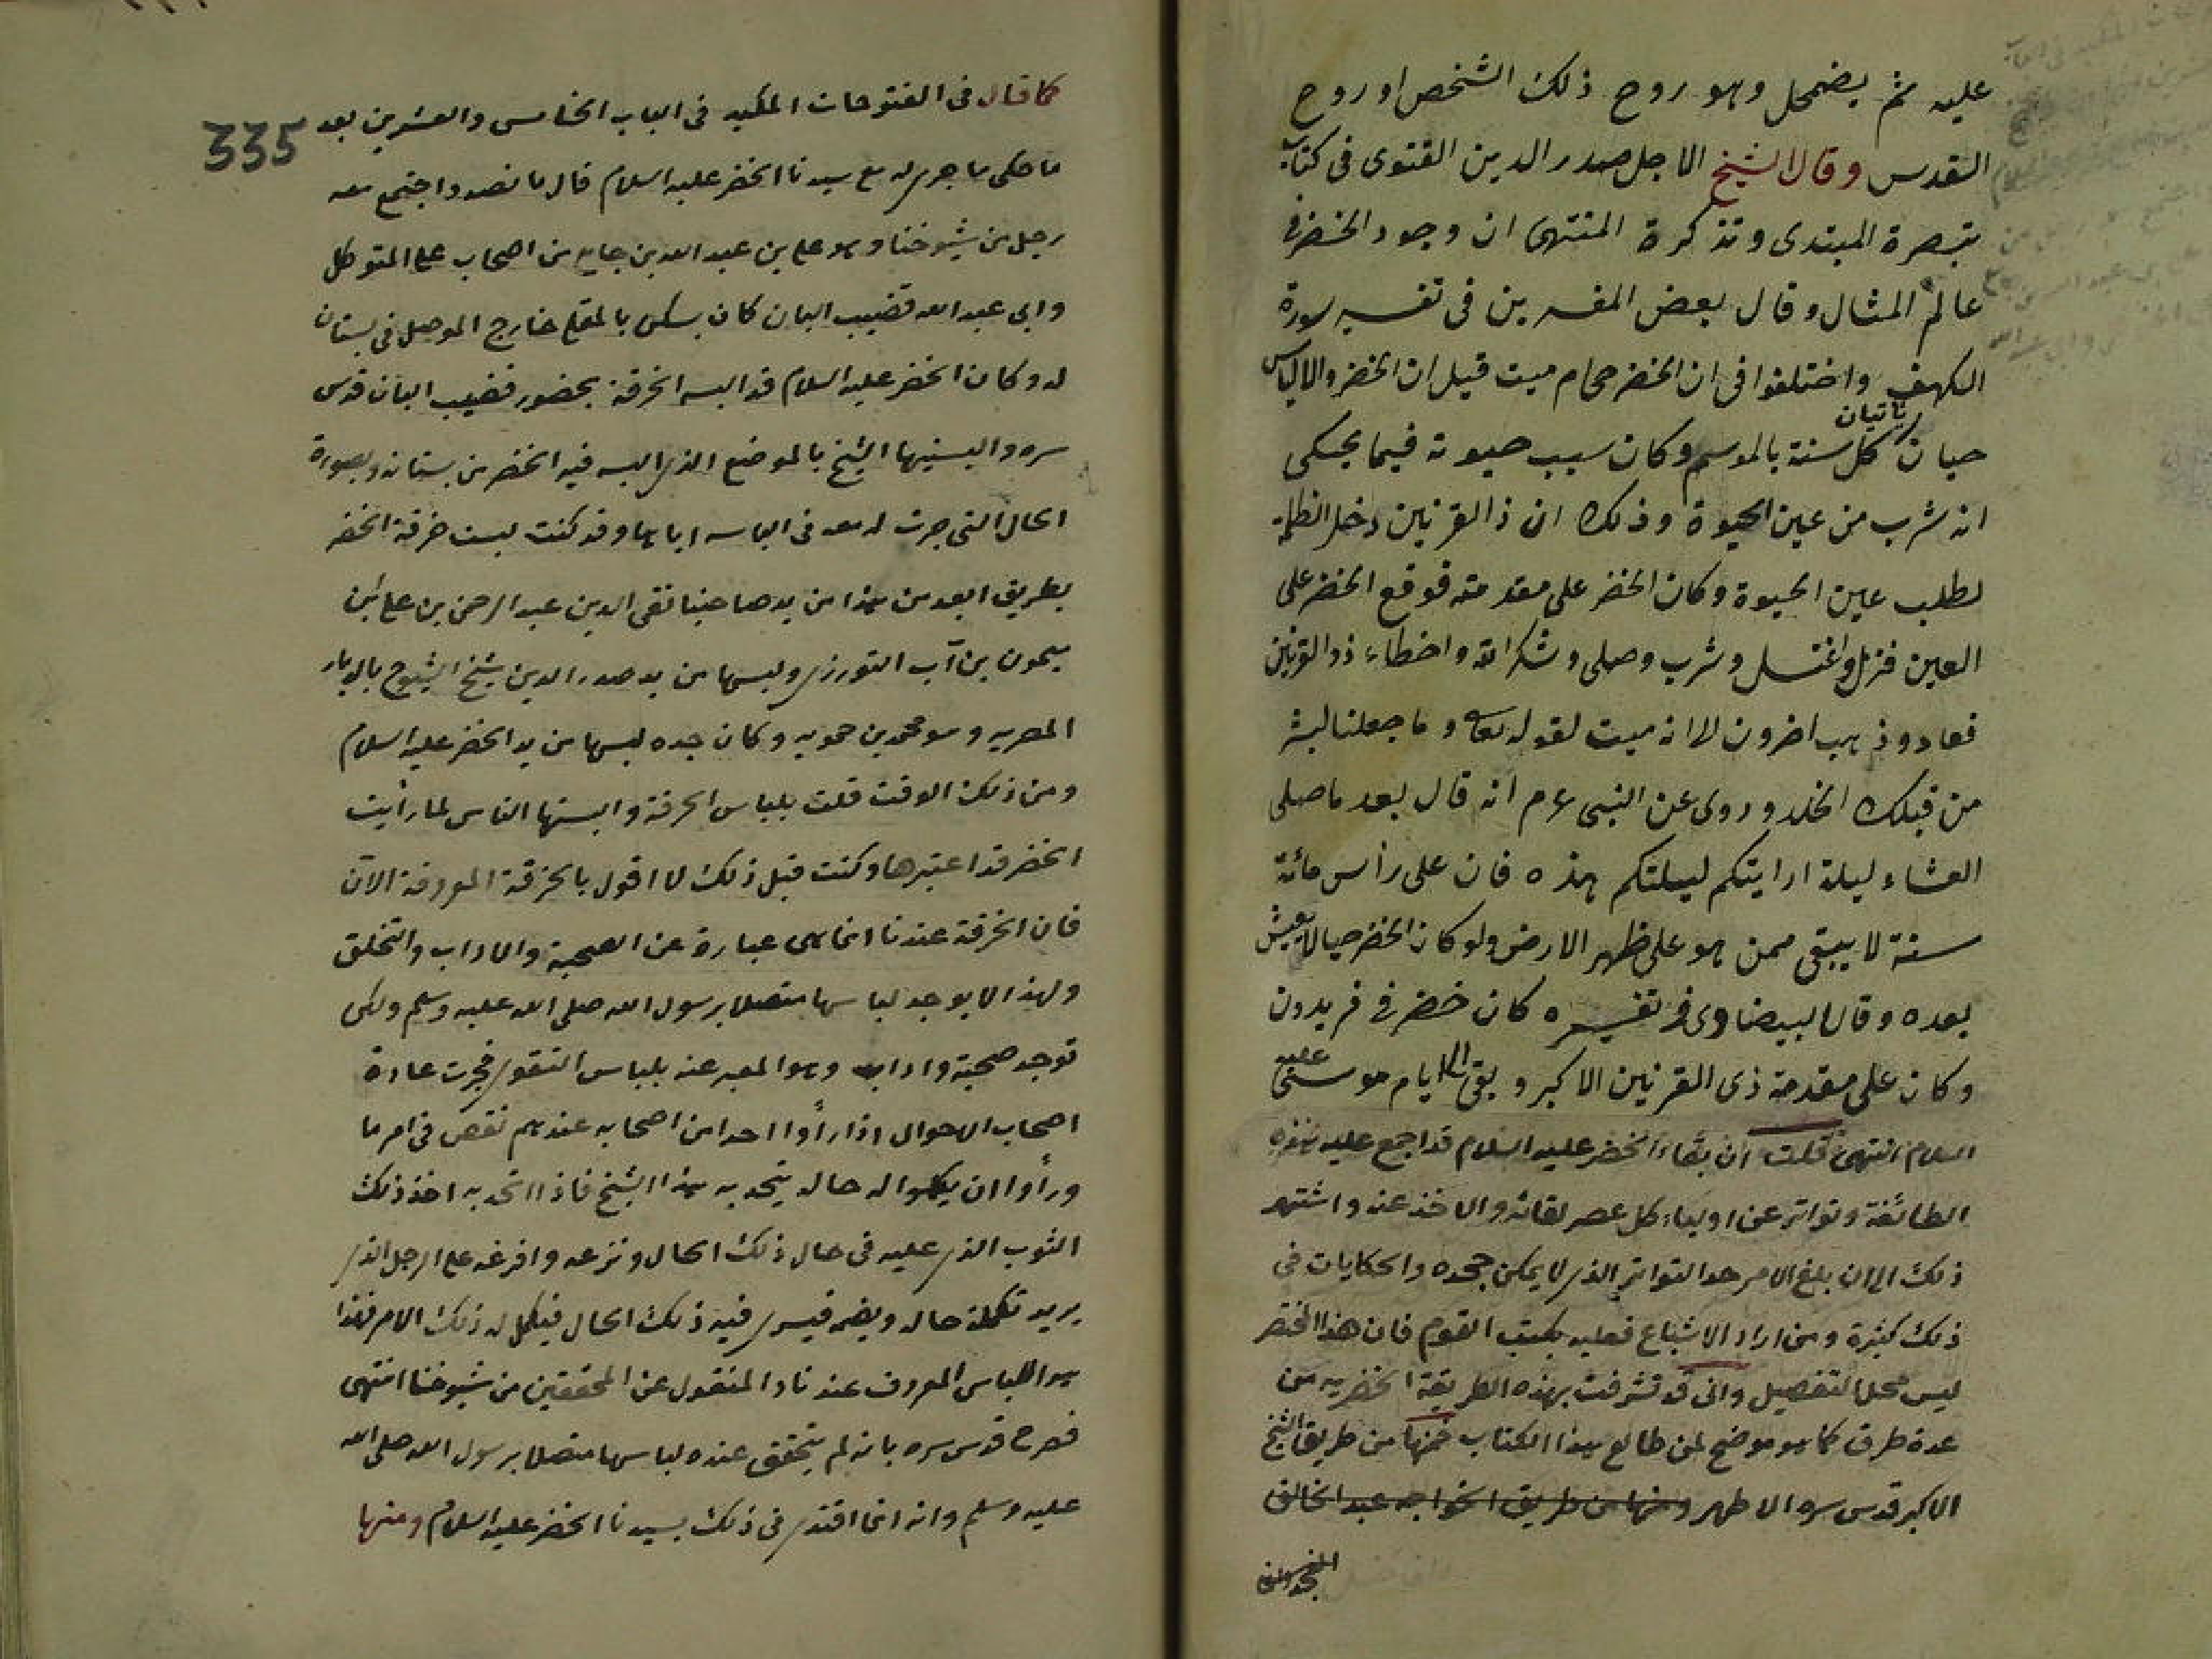 عليه ثم يضمحل وهو روح ذلك الشخص او روح
القدس وقال الشيخ الاجل صدر الدين القنوى فى كتاب
تبصرة المبتدى وتذكرة المنتهى ان وجود الخضر فى
عالم المثال وقال بعض المفسرين فى تفسير سورة
الكهف واختلفوا فى ان الخضر حى ام ميت قيل ان الخضر والالياس
حيان ياتيان كل سنة بالموسم وكان سبب حيوته فيما يحكى
انه شرب من عين الحيوة وذلك ان ذا القرنين دخل الظلمة
لطلب عين الحيوة وكان الخضر على مقدمته فوقع الخضر على
العين فنزل واغتسل وشرب وصلى وشكر الله واخطاء ذو القرنين
فعاد وذهب اخرون الا انه ميت لقوله تعا وما جعلنا لبشر
من قبلك الخلد وروى عن النبى عم انه قال بعد ما صلى
العشاء ليلة ارايتكم ليلتكم هذه فان على رأس مائة
سنة لا يبقى ممن هو على ظهر الارض ولو كان الخضر حيا لا يعيش
بعده وقال البيضاوى فى تفسيره كان خضر فى فريدون
وكان على مقدمة ذى القرنين الاكبر وبقى الى ايام موسى عليه
السلام انتهى قلت ان بقاء الخضر عليه السلام قد اجمع عليه هذه
الطائفة وتواتر عن اولياء كل عصر لقائه والاخذ عنه واشتهر
ذلك الى ان بلغ الامر حد التواتر الذى لا يمكن جحده والحكايات فى
ذلك كثيرة ومن اراد الاشباع فعليه بكتب القوم فان هذا المختصر
ليس محلا لتفصيل وانى قد تشرفت بهذه الطريقة الخضريه من
عدة طرق كما هو موضح لمن طالع هذا الكتاب فمنها من طريق الشيخ
الاكبر قدس سره الاطهر ومنها من طريق الخواجه عبد الخالق
الغجدوانى
335
كما قال فى الفتوحات المكيه فى الباب الخامس والعشرين بعد
ما حكى ما جرى له مع سيدنا الخضر عليه السلام قال ما نصه واجتمع معه
رجل من شيوخنا وهو على بن عبد الله بن جامع من اصحاب على المتوكل
وابى عبد الله قضيب البان كان يسكن بالمقلى خارج الموصل فى بستان
له وكان الخضر عليه السلام قد البسه الخرقة بحضور قضيب البان قدس
سره والبسنيها الشيخ بالموضع الذى البسه فيه الخضر من بستانه وبصورة
الحال التى جرت له معه فى الباسه اياها وقد كنت لبست خرقة الخضر
بطريق ابعد من هذا من يد صاحبنا تقى الدين عبد الرحمن بن على بن
ميمون بن آب التورزى ولبسها من يد صدر الدين شيخ الشيوخ بالديار
المصريه وهو محمد بن حمويه وكان جده لبسها من يد الخضر عليه السلام
ومن ذلك الوقت قلت بلباس الخرقة والبستها الناس لما رأيت
الخضر قد اعتبرها وكنت قبل ذلك لا اقول بالخرقة المعروفة الآن
فان الخرقة عندنا انما هى عبارة عن الصحبة والاداب والتخلق
ولهذا لا يوجد لباسها متصلا برسول الله صلى الله عليه وسلم ولكن
توجد صحبة واداب وهو المعبر عنه بلباس التقوى فجرت عادة
اصحاب الاحوال اذا رأوا احدا من اصحابه عندهم نقص فى امر ما
ورأوا ان يكملوا له حاله يتحد به هذا الشيخ فاذا اتحد به اخذ ذلك
الثوب الذى عليه فى حال ذلك الحال ونزعه وافرغه على الرجل الذى
يريد تكملة حاله ويضمه فيسرى فيه ذلك الحال فيكمل له ذلك الامر فهذا
هو اللباس المعروف عندنا والمنقول عن المحققين من شيوخنا انتهى
فصرح قدس سره بانه لم يتحقق عنده لباسها متصلا برسول الله صلى الله
عليه وسلم وانه انما اقتدى فى ذلك بسيدنا الخضر عليه السلام ومنها